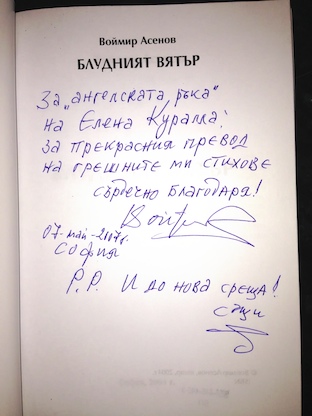 Воймир Асенов
БЛУДНИЯТ ВЯТЪР
За „ангелската ръка"
на Елена Куралла:
за прекрасния превод
на грешните ми стихове
сърдечно благодаря!
07-май-2007г.
София
P.P. И до нова среща!
същи